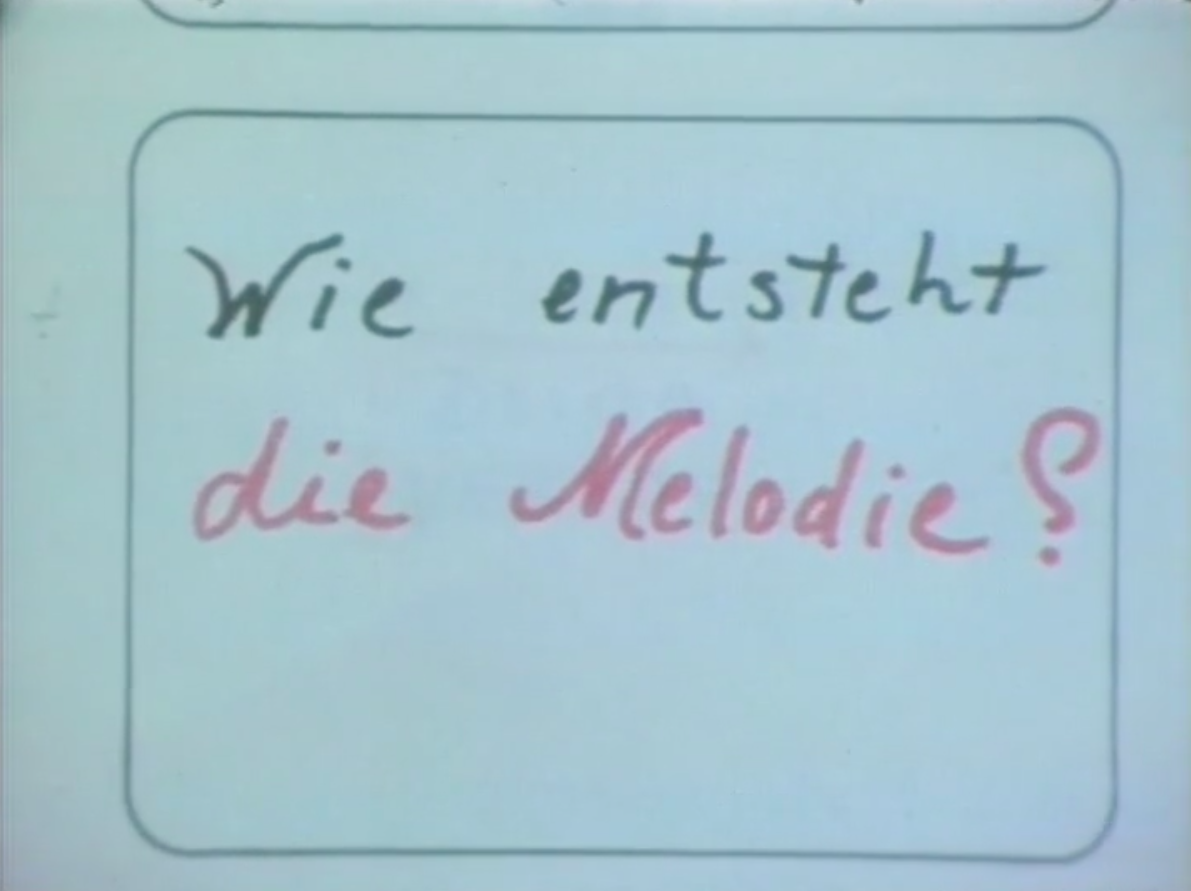 Wie entsteht
die Melodie?